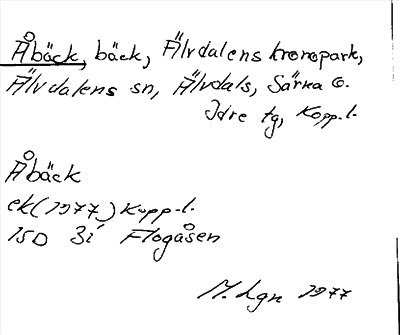 Åbäck, bäck, Älvdalens kronopark,
Älvdalens sn, Älvdals, Särna o.
Idre tg, Kopp.l.
Åbäck
ek(1977) Kopp.l.
15D 3i Flogåsen
M. Lgn 1977